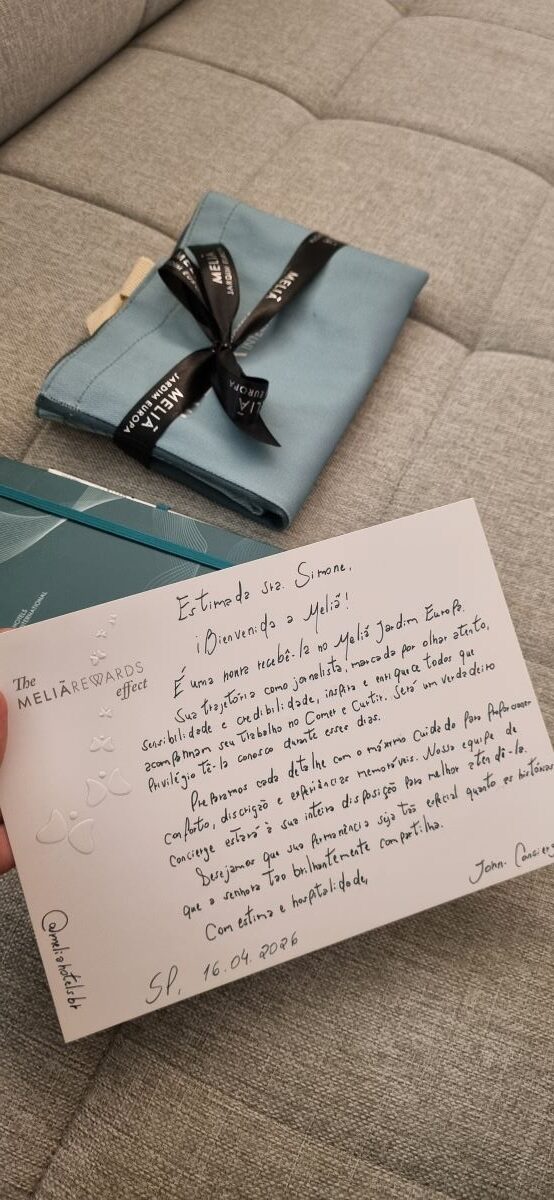 MELIÁ
JARDIM EUROPA
MELIÁ
MELIÁ
JARDIM EUROPA
HOTELS
INTERNATIONAL
The
MELIÁREWARDS
effect
Estimada sra. Simone,
¡Bienvenida a Meliã!
É uma honra recebê-la no Meliã Jardim Europa.
Sua trajetória como jornalista, marcada por olhar atento,
sensibilidade e credibilidade, inspira e enriquece todos que
acompanham seu trabalho no Comer e Curtir. Será um verdadeiro
Privilégio tê-la conosco durante esses dias.
Preparamos cada detalhe com o máximo cuidado para proporcionar
conforto, discrição e experiências memoráveis. Nossa equipe de
concierge estará à sua inteira disposição para melhor atendê-la.
Desejamos que sua permanência seja tão especial quanto as histórias
que a senhora tão brilhantemente compartilha.
Com estima e hospitalidade,
John. Concierg
SP, 16.04.2026
@meliahotelsbr